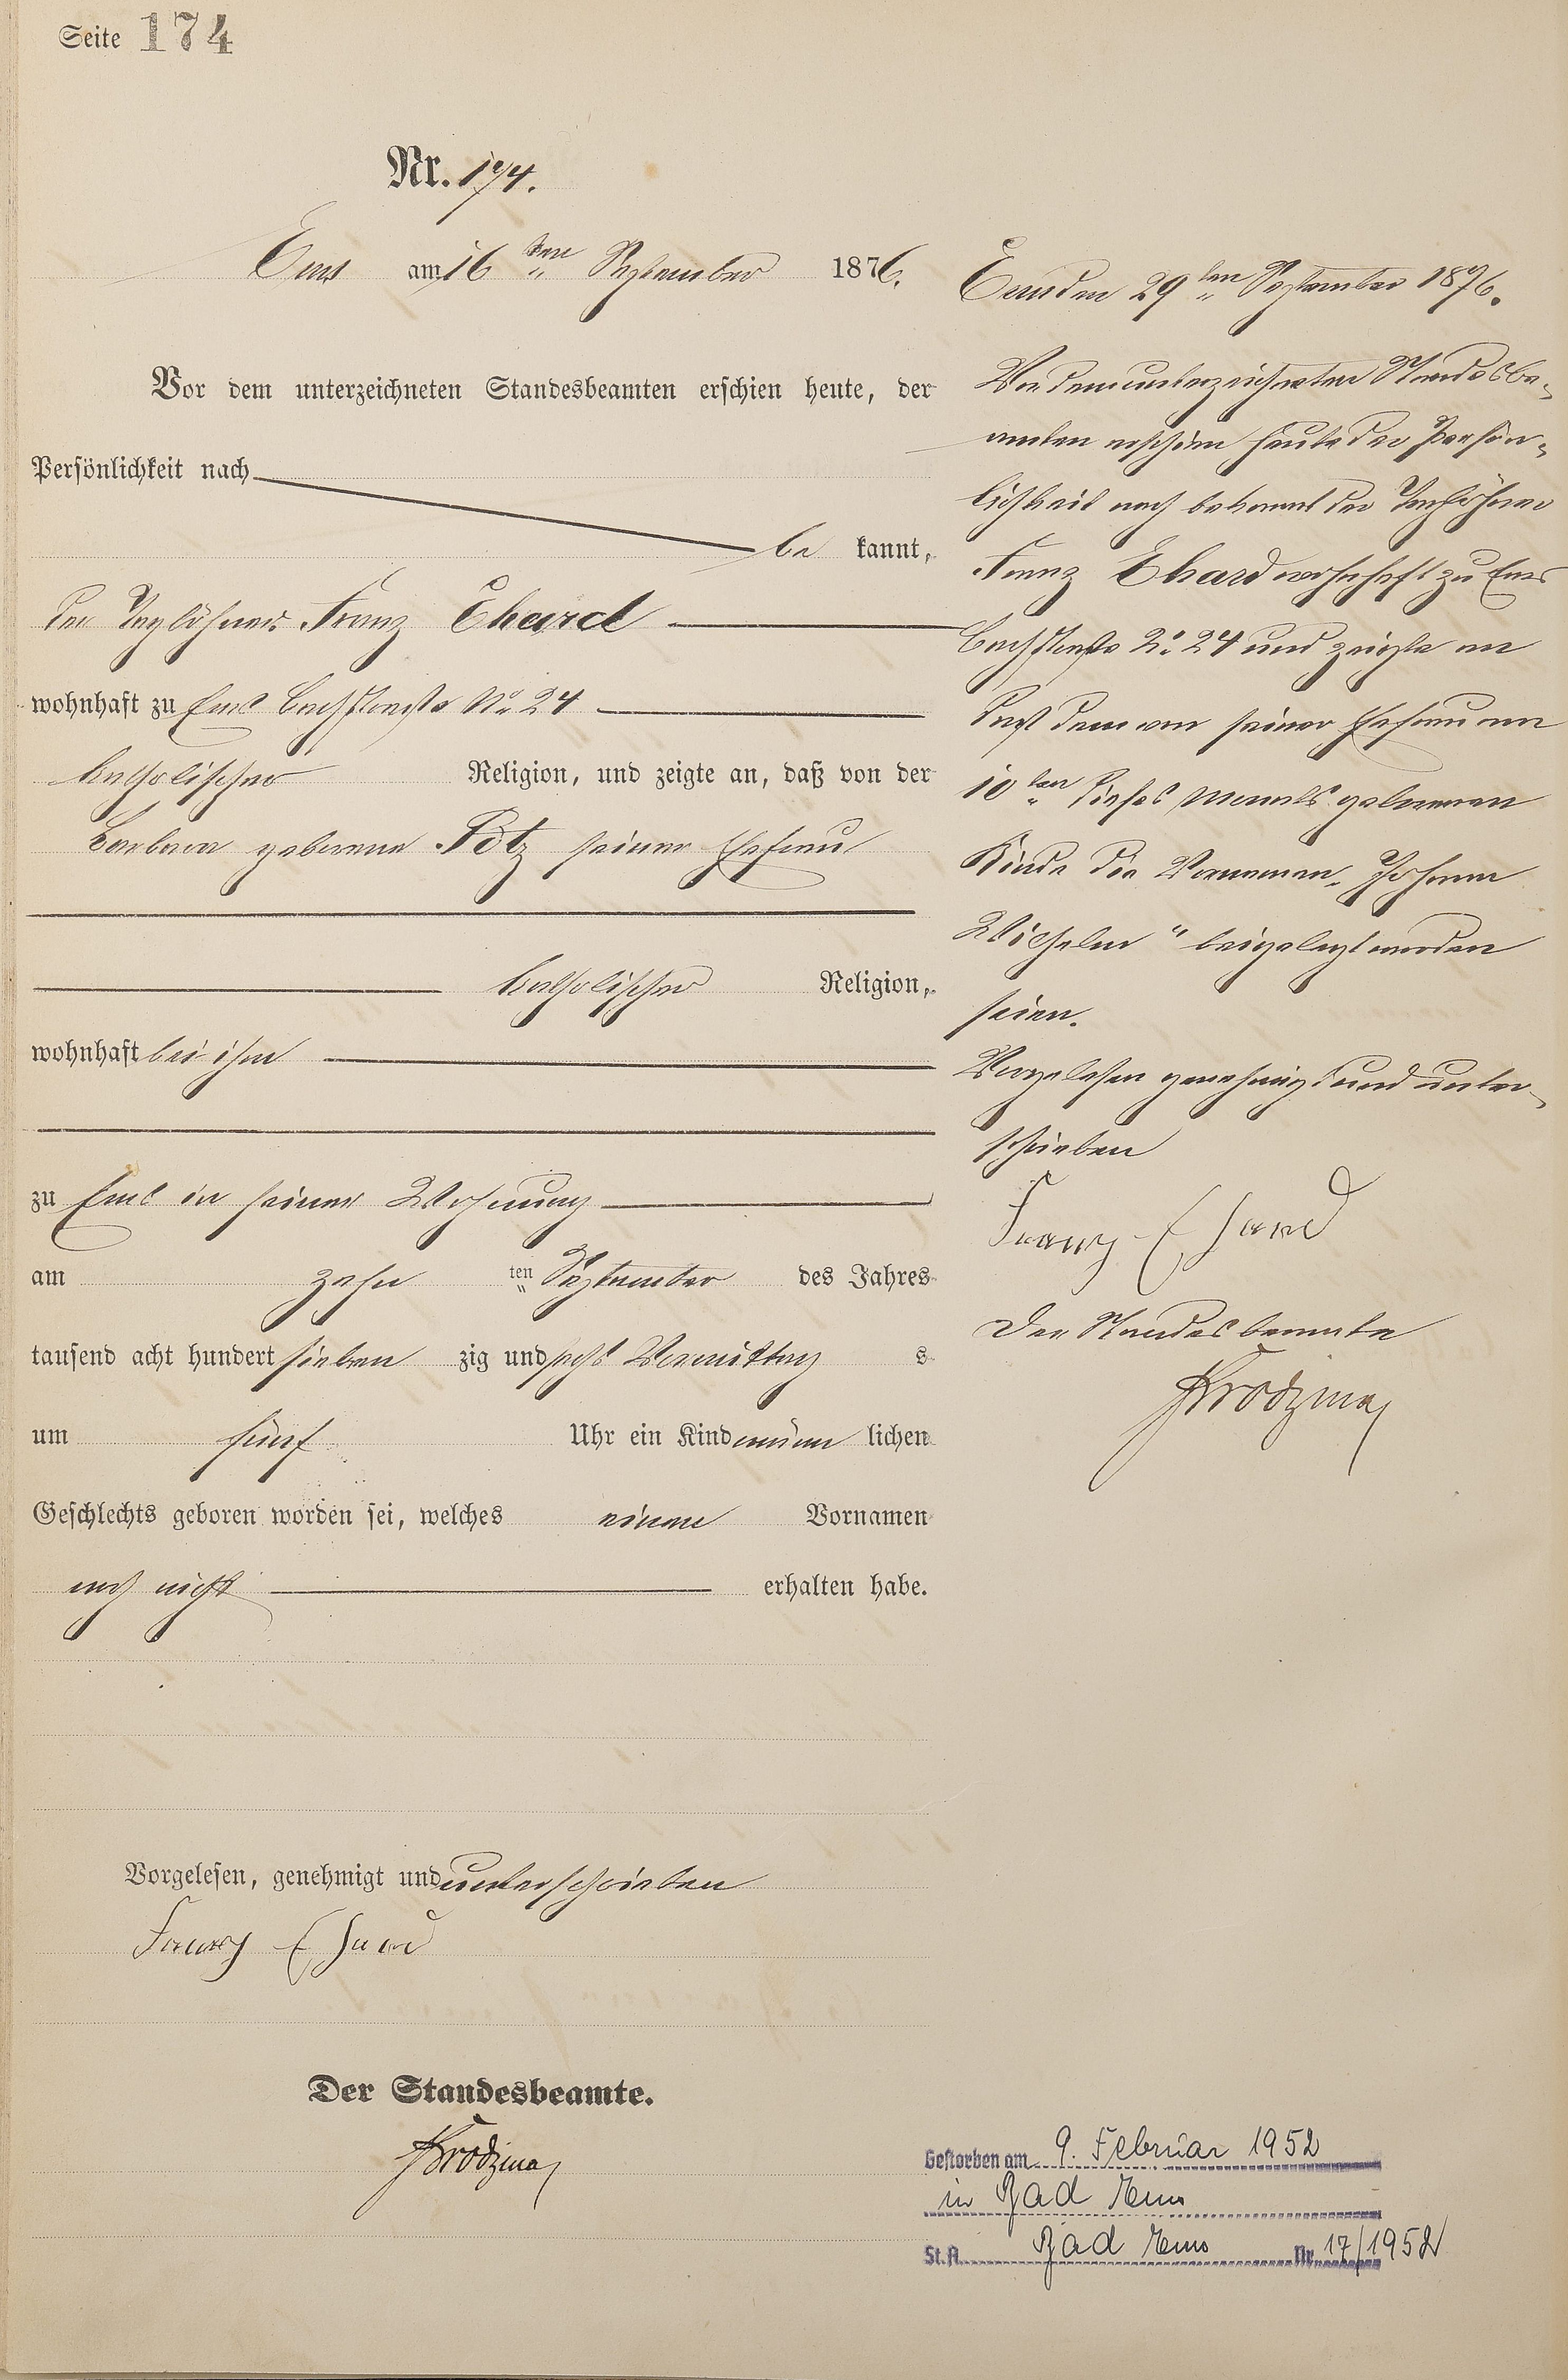 Seite 174
Nr. 174.
Ems am 16 ten September 1876.
Vor dem unterzeichneten Standesbeamten erschien heute, der
Persönlichkeit nach
be kannt,
der Taglöhner Franz Ehard
wohnhaft zu Ems Bachstraße No 24
katholischer Religion, und zeigte an, daß von der
Barbara geborene Pötz seiner Ehefrau
katholischer Religion,
wohnhaft bei ihm
zu Ems in seiner Wohnung
am zehn ten September des Jahres
tausend acht hundert sieben zig und sechs Vormittag s
um fünf Uhr ein Kind männ lichen
Geschlechts geboren worden sei, welches einen Vornamen
noch nicht erhalten habe.
Vorgelesen, genehmigt und unterschrieben
Franz Ehard
Der Standesbeamte.
Ems den 29 ten September 1876.
Vor dem unterzeichneten Standesbe-
amten erschien heute der Persön-
lichkeit nach bekannt der Taglöhner
Franz Ehard wohnhaft zu Ems
Bachstraße No 24 und zeigte an
daß dem von seiner Ehefrau am
10 ten dieses Monats geborenen
Kinde die Vornamen „Johann
Wilhelm“ beigelegt worden
seien.
Vorgelesen genehmigt und unter-
schrieben
Franz Ehard
Der Standesbeamte
Gestorben am 9. Februar 1952
in Bad Ems
St. A. Bad Ems Nr. 17/1952